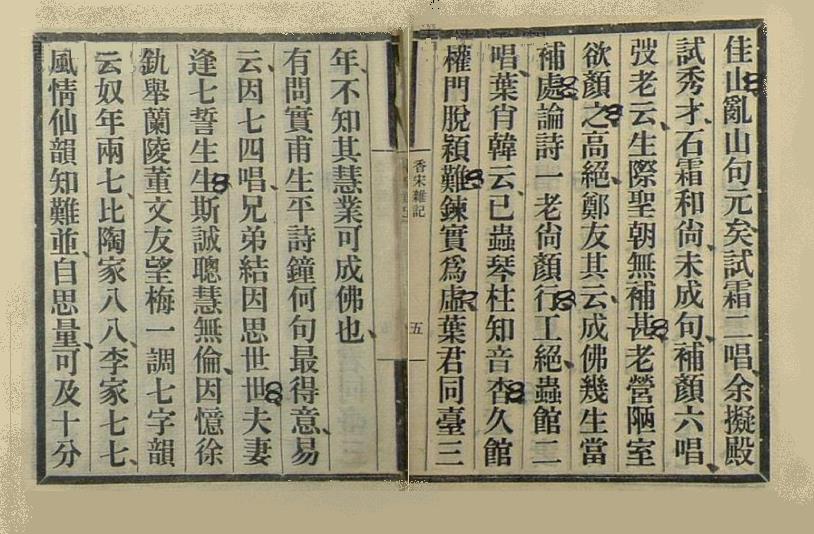 佳山亂山句元矣試霜二唱余擬殿
試秀才石霜和尙未成句補顏六唱
弢老云生際聖朝無補甚老營陋室
欲顏之高絕鄭友其云成佛幾生當
補處論詩一老尙顏行工絕蟲館二
唱葉肖韓云已蟲琴柱知音杳久館
權門脫穎難鍊實爲虛葉君同臺三
香宋雜記
五
年不知其慧業可成佛也
有問實甫生平詩鐘何句最得意易
云因七四唱兄弟結因思世世夫妻
逢七誓生生斯誠聰慧無倫因憶徐
釚舉蘭陵董文友望梅一調七字韻
云奴年兩七比陶家八八李家七七
風情仙韻知難並自思量可及十分